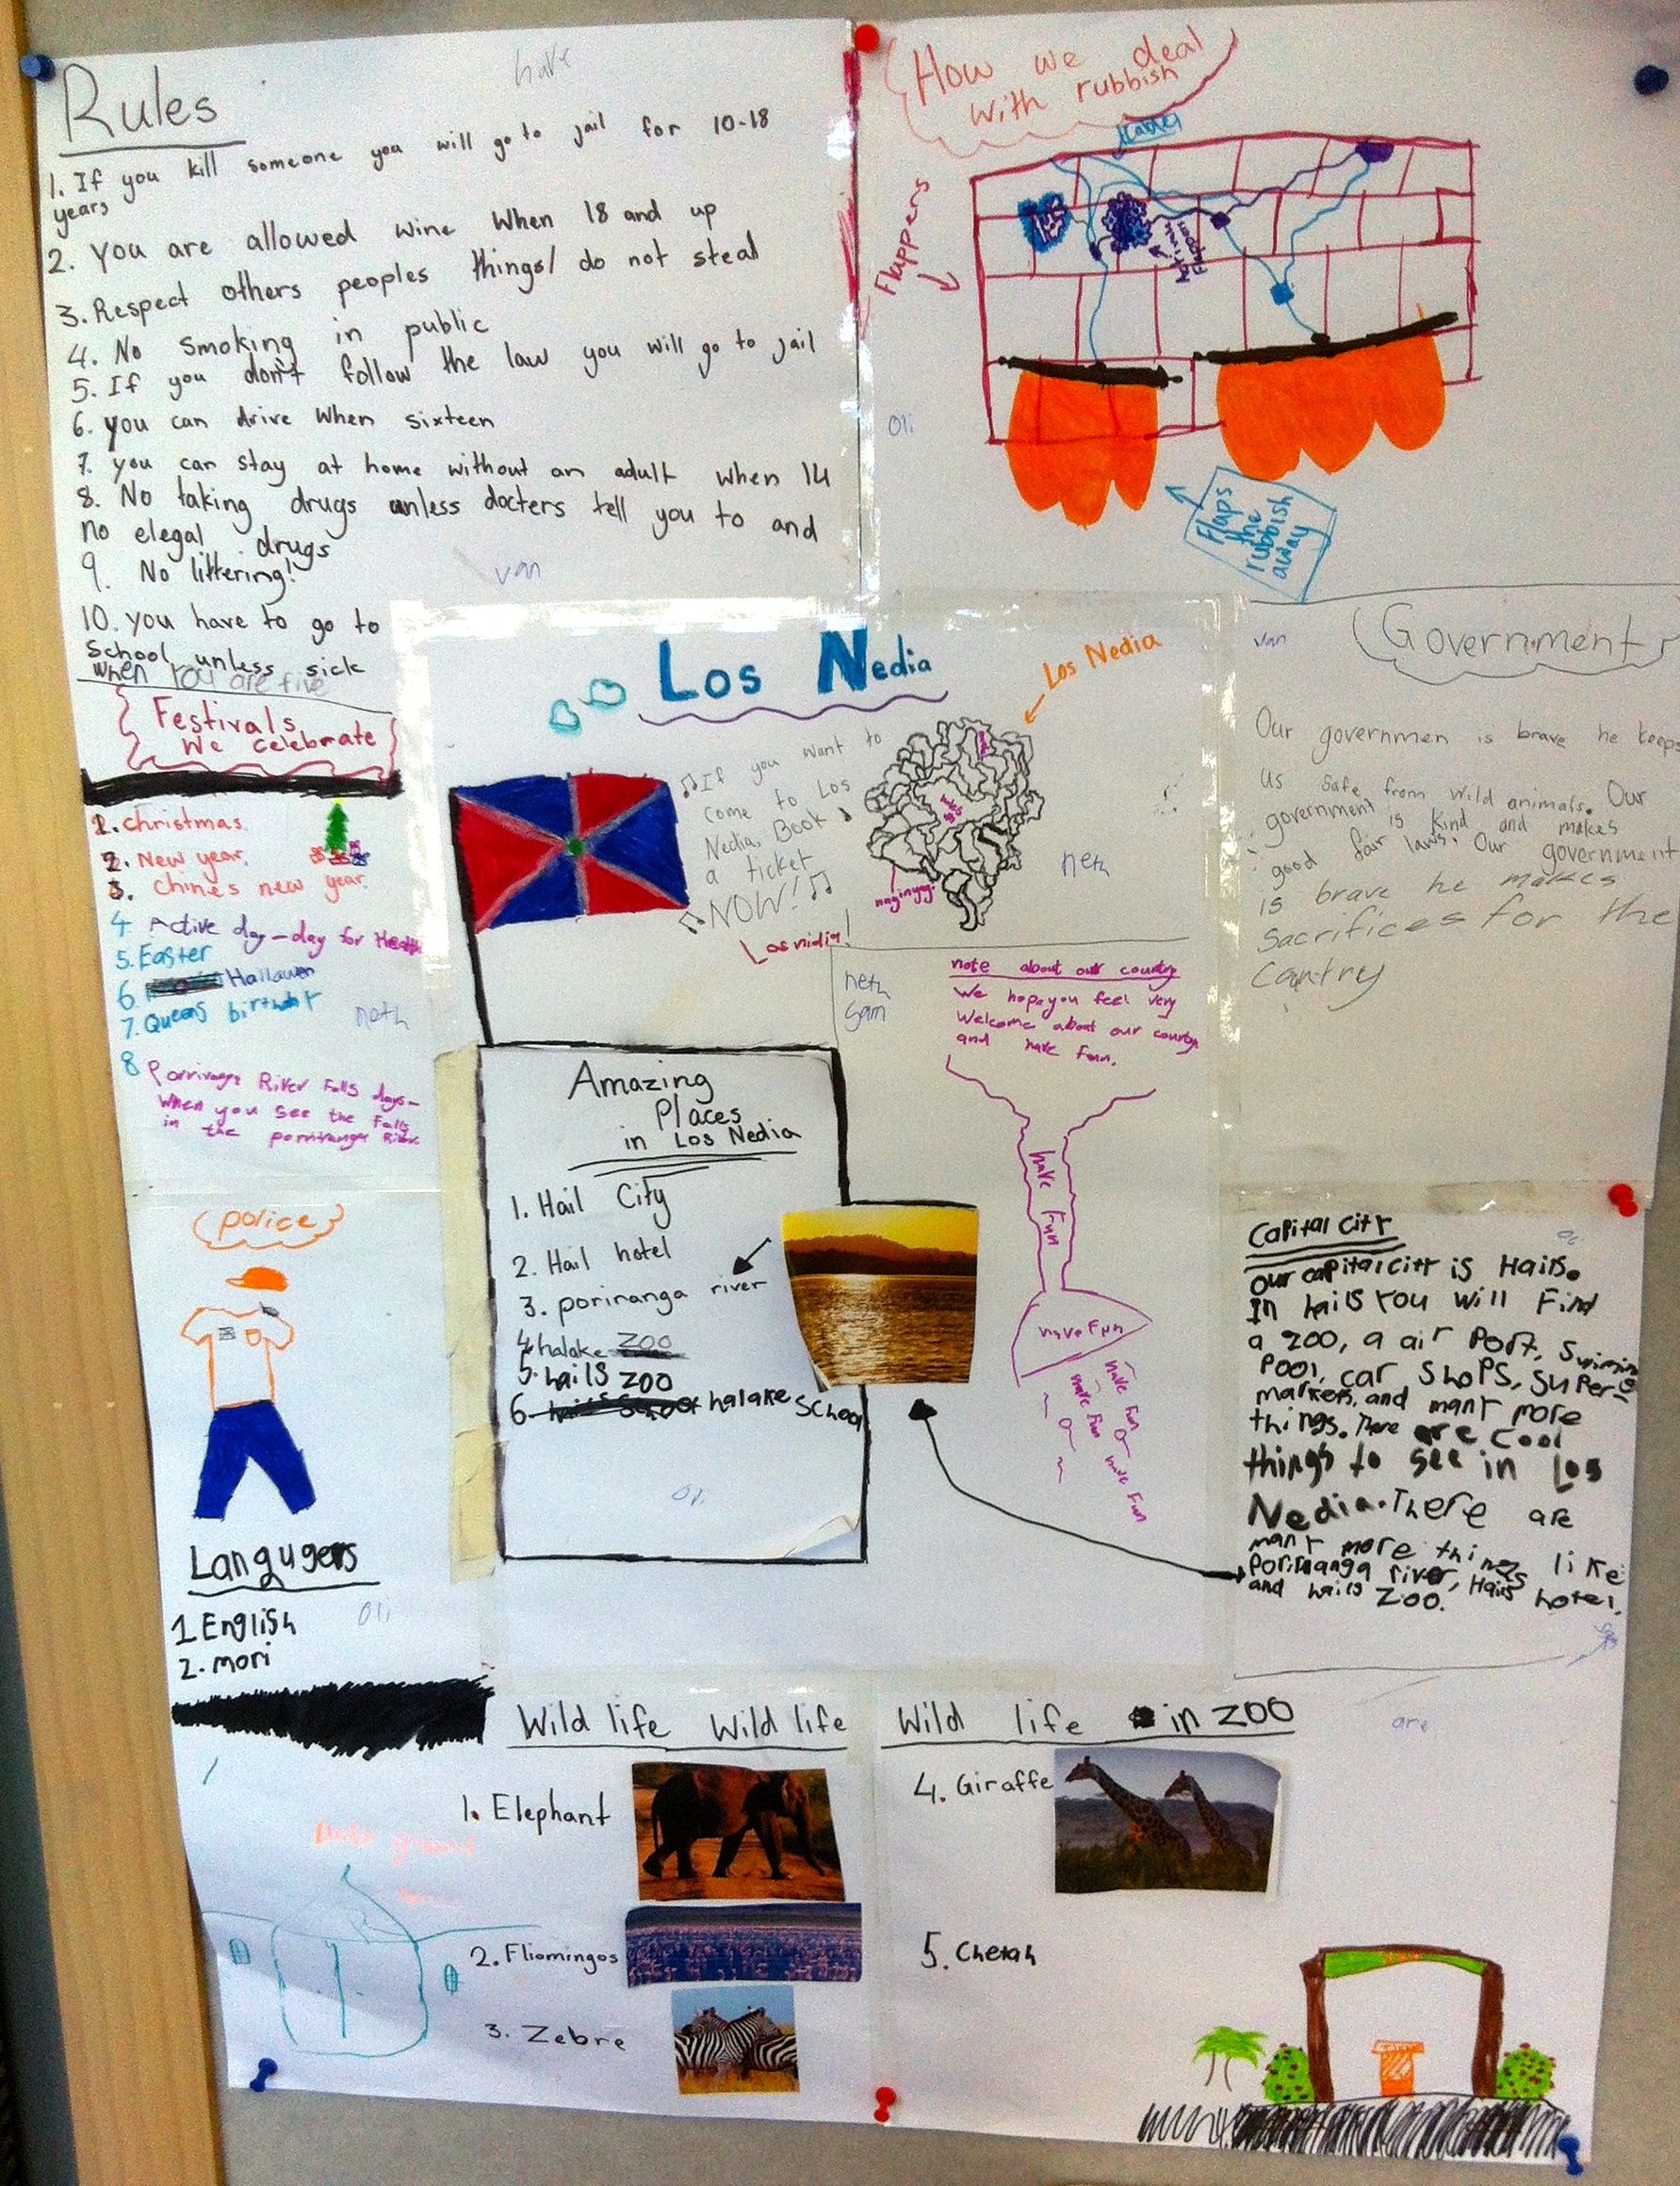 Rules
1. If you kill someone you will go to jail for 10-18
years
2. You are allowed wine when 18 and up
3. Respect others peoples things/ do not steal
4. No smoking in public
5. If you don't follow the law you will go to jail
6. you can drive when sixteen
7. you can stay at home without an adult when 14
8. No taking drugs unless docters tell you to and
no elegal drugs
9. No littering!
10. you have to go to
School unless sick
when you are five
van
How we deal
with rubbish
Flappers
Oli
Flaps
the
rubbish
away
Festivals
We celebrate
1. Christmas
2. New year.
3. Chines new year.
4. Active day-day for Health
5. Easter
6. Hallawen
7. Queens birthday
neth
8 Porriranga River Falls days-
When you see the Falls
in the porriranga River.
Los Nedia
Los Nedia
If you want to
come to Los
Nedia, Book
a ticket
NOW!
Los nidia!
neth
neth
Sam
note about our country
We hope you feel very
Welcome about our country
and have Funn.
have Fun
have Fun
have Fun
have Fun
have Fun
van
Government
Our governmen is brave he keeps
us safe from wild animals. Our
government is kind and makes
good fair laws. Our government
is brave he makes
sacrifices for the
Cantry
Amazing
Places
in Los Nedia
1. Hail City
2. Hail hotel
3. poriranga river
4 halake
5. hails zoo
6. halake School
Capital City
our capital city is Hails.
In hails You will Find
a zoo, a air Port, Swiming
Pool, car shops, super
markets, and many more
things. There are cool
things to see in Los
Nedia. There are
many more things like
Poriranga river, Hails hotel,
and hails Zoo.
police
Langugers
1 English
2. mori
Oli
Wild life Wild life
1. Elephant
2. Fliomingos
3. Zebre
Wild life in Zoo
4. Giraffe
5. Chetah